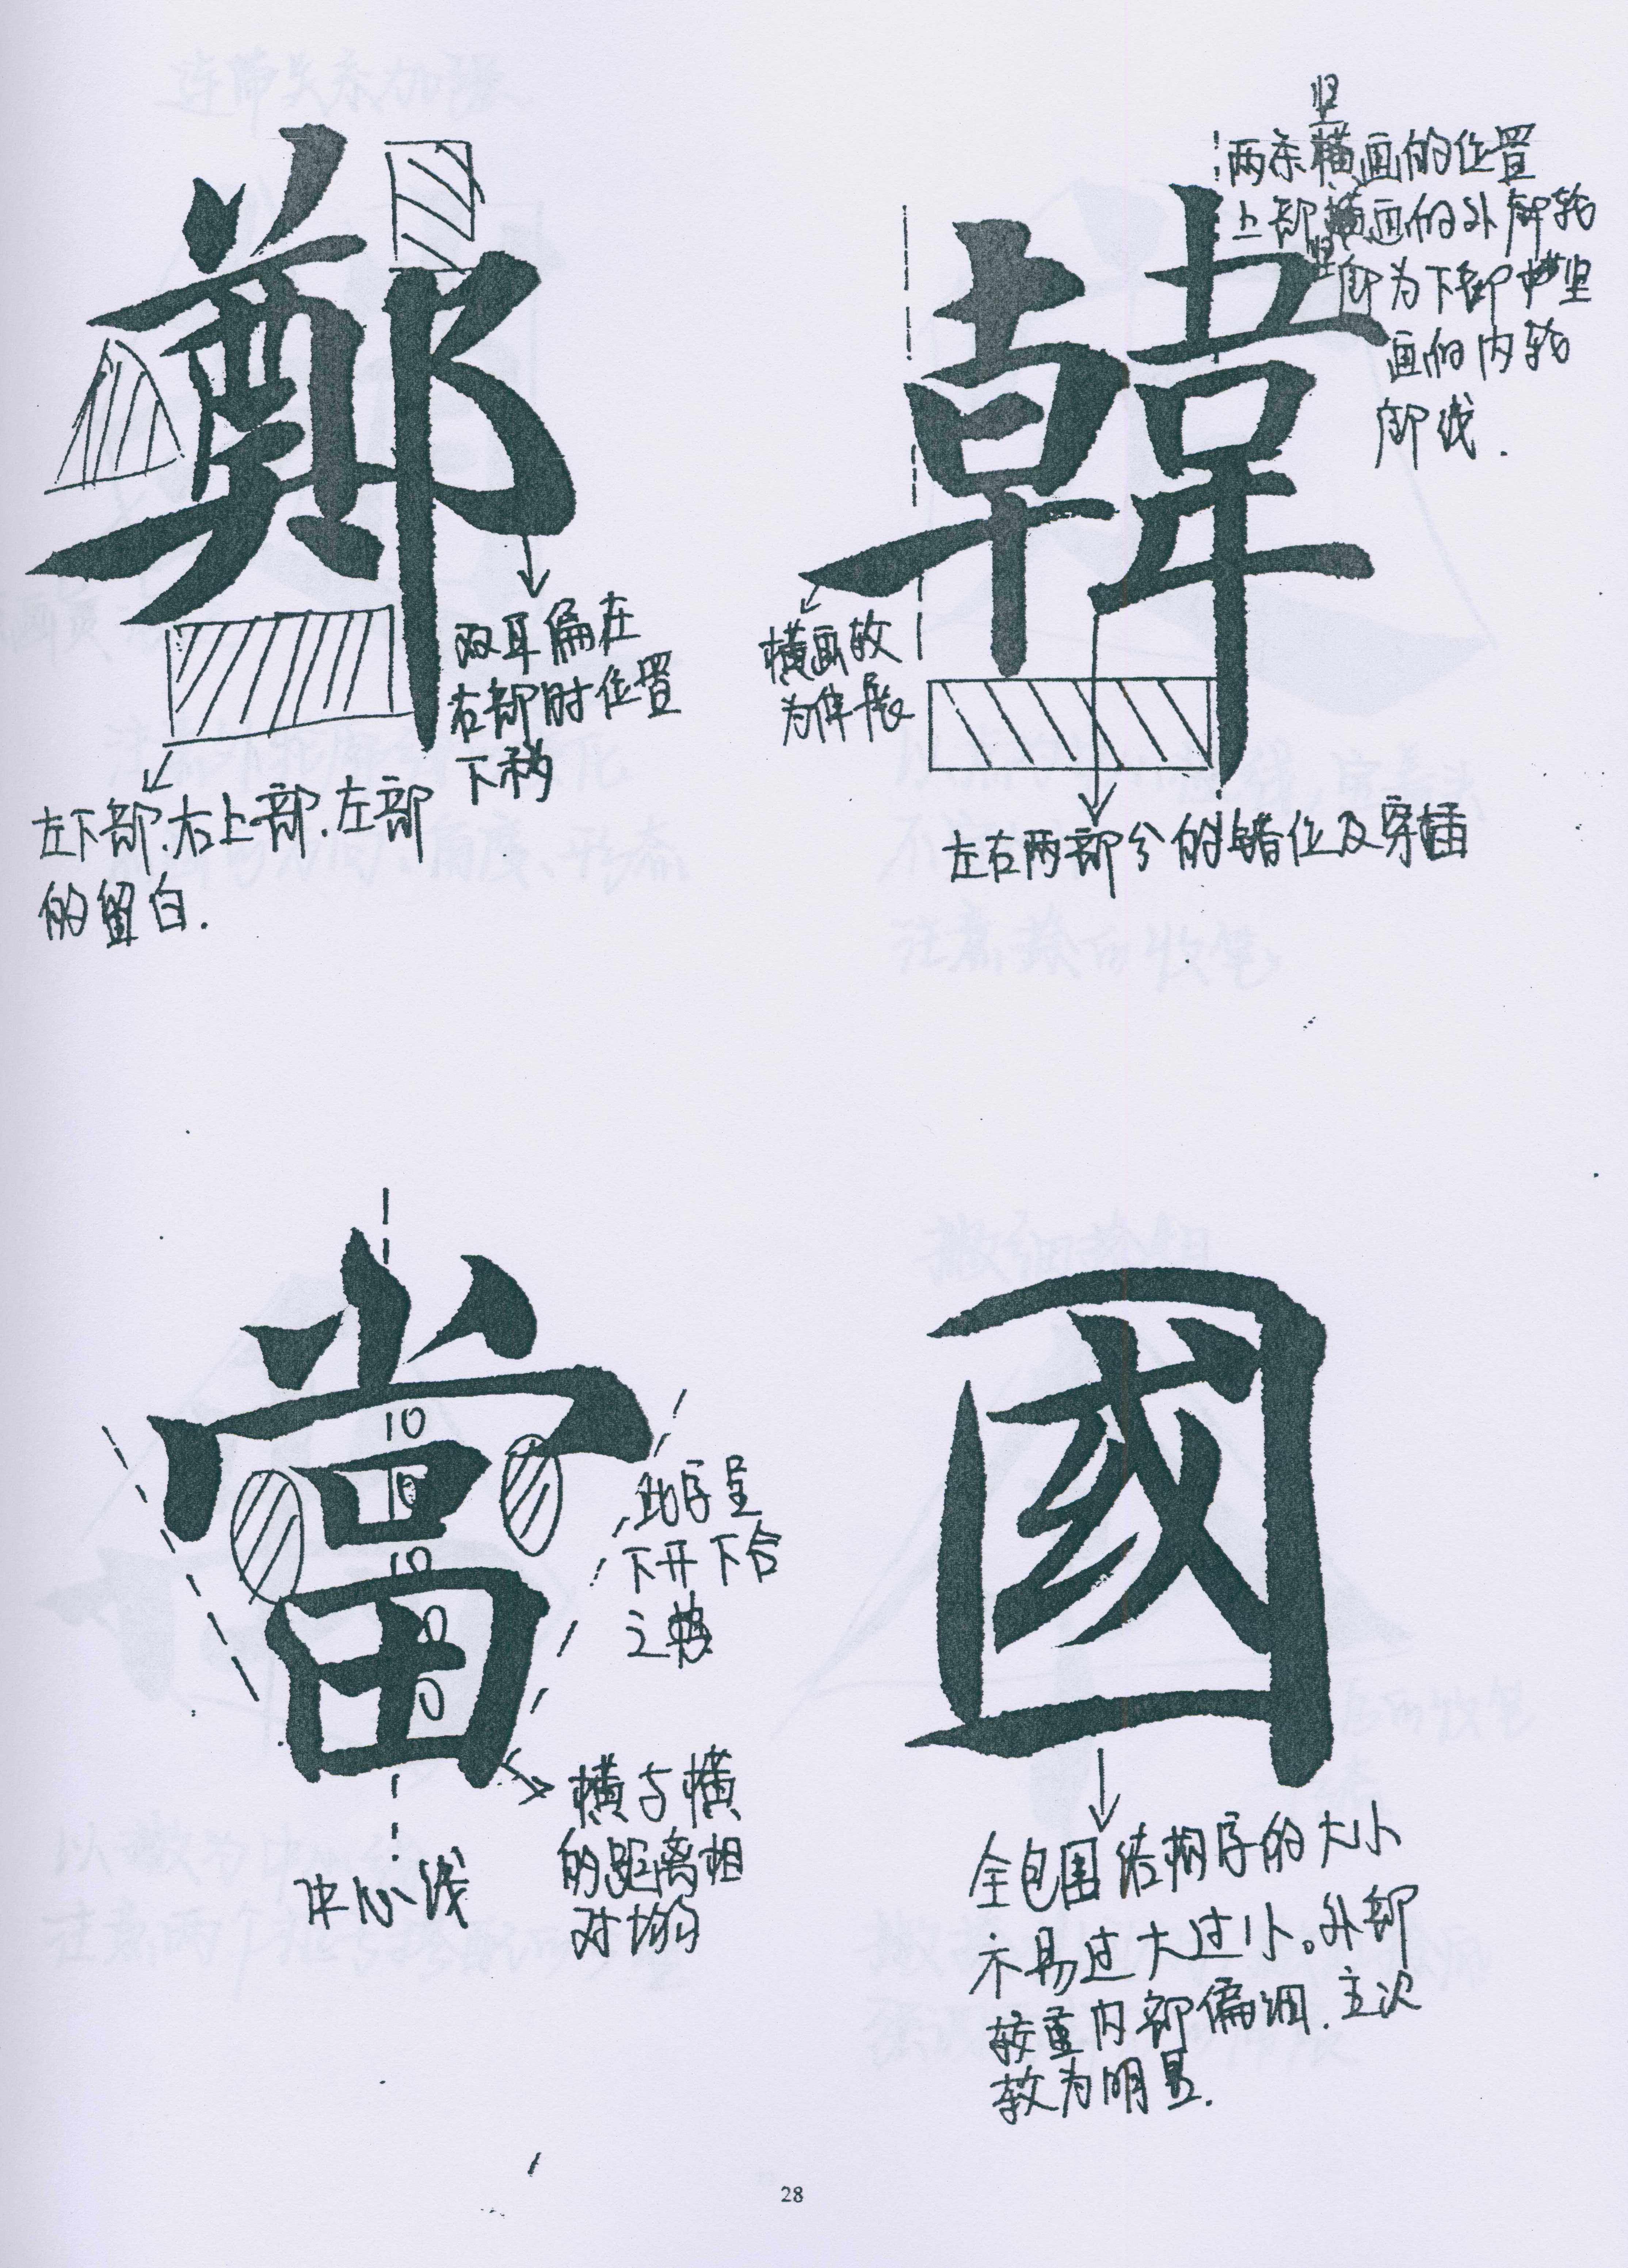 鄭
双耳偏在
右部时位置
下移
左下部.右上部.左部
的留白.
韓
竖
两条横画的位置
上部横画的外廓轮
竖
廓为下部中竖
画的内轮
廓线.
横画较
为伸展
左右两部分的错位及穿插
當
此字呈
下开下合
之势
横与横
的距离相
对均匀
中心线
國
全包围结构字的大小
不易过大过小。外部
较重内部偏细.主次
较为明显.
28